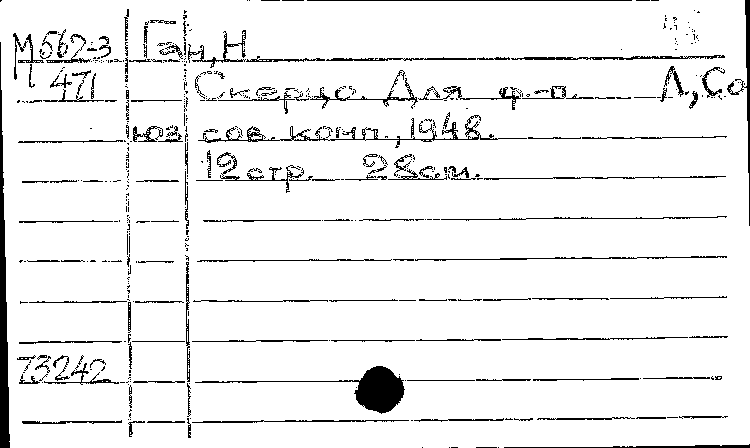 М 567-3 Ган, Н.
471 Скерцо. Для ф.-п. Л, Со
юз сов. комп., 1948.
12 стр. 28 см.
73242